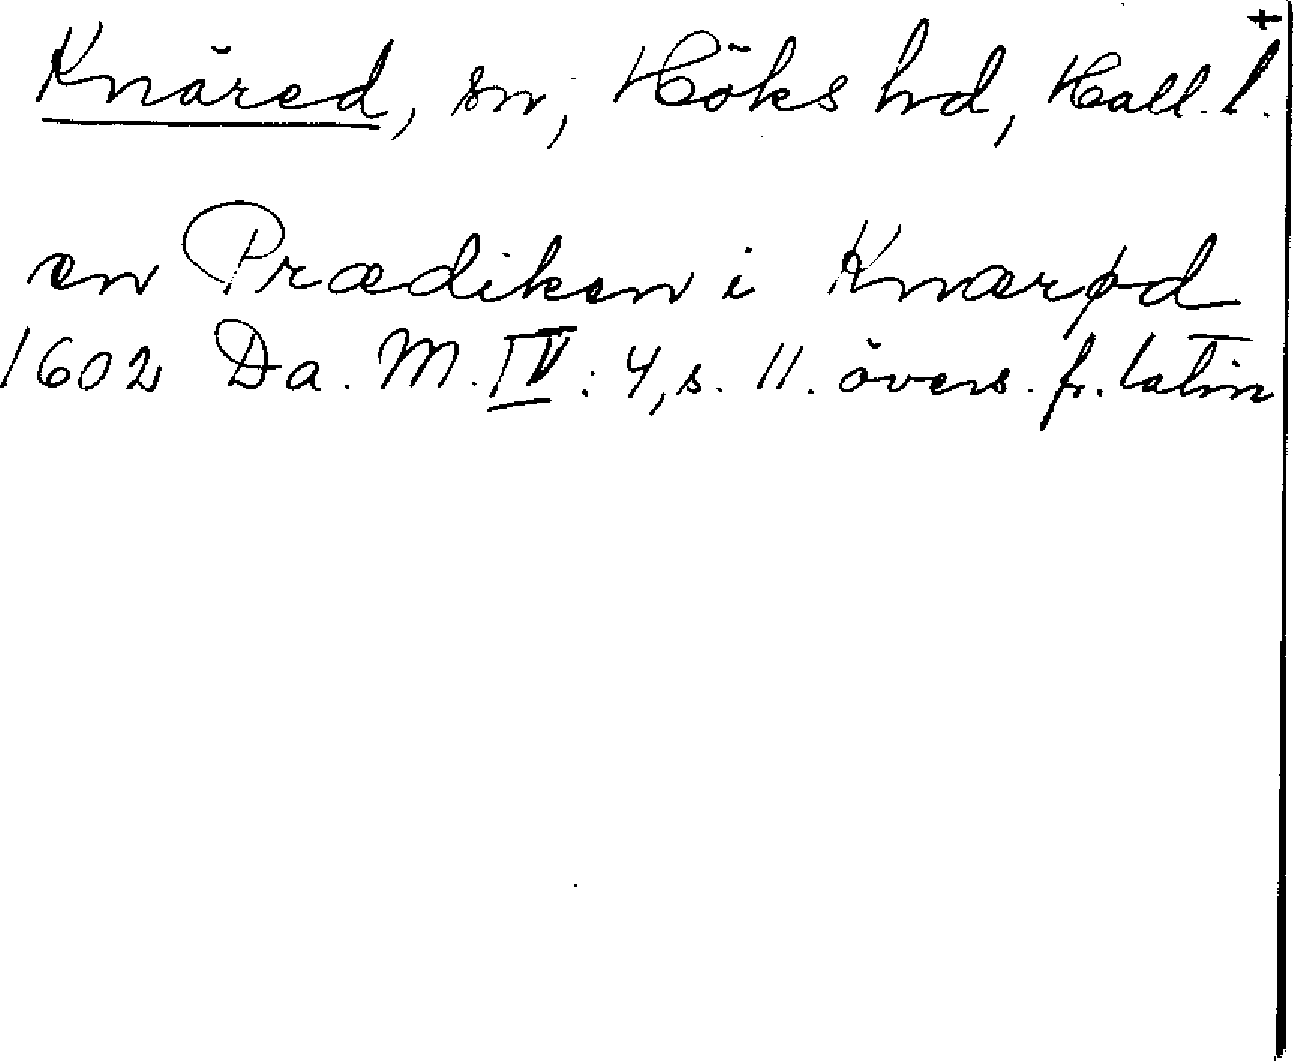 Knäred, sn, Höks hd, Hall. l.
en Prædiken i Knærød
1602 Da. M. IV: 4, s. 11. övers. fr. latin